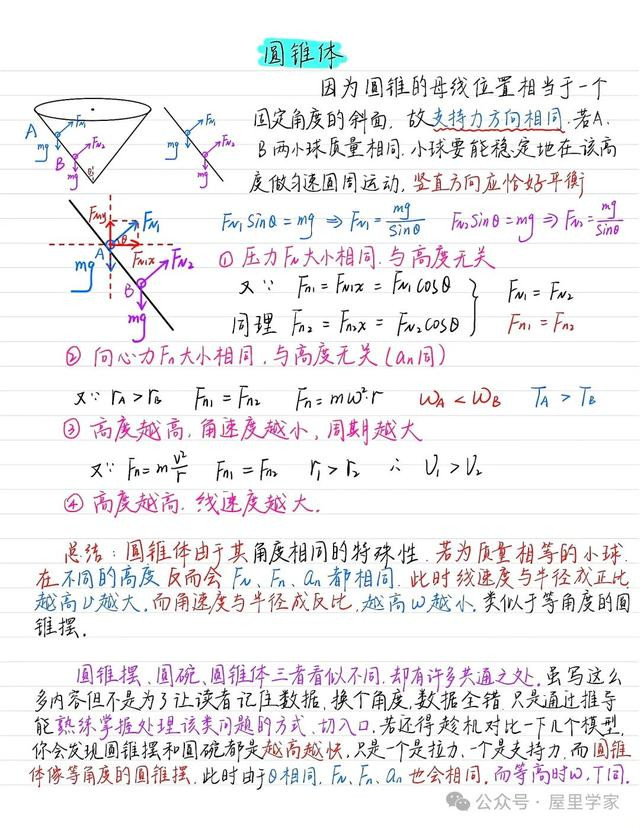 圆锥体
因为圆锥的母线位置相当于一个
固定角度的斜面，故支持力方向相同.若A、
B两小球质量相同.小球要能稳定地在该高
度做匀速圆周运动，竖直方向应恰好平衡
A FN1 mg B FN2 mg θ
FN1 mg FN2 mg
FN1y FN1 θ A FN1x mg B FN2 mg
FN1 sinθ = mg ⇒ FN1 = mg/sinθ FN2 sinθ = mg ⇒ FN2 = mg/sinθ
① 压力FN大小相同.与高度无关
又∵ Fn1 = FN1x = FN1cosθ } FN1 = FN2
同理 Fn2 = FN2x = FN2cosθ } Fn1 = Fn2
② 向心力Fn大小相同，与高度无关(an同)
又∵ rA > rB Fn1 = Fn2 Fn = mω²r ωA < ωB TA > TB
③ 高度越高，角速度越小，周期越大
又∵ Fn = m v²/r Fn1 = Fn2 r1 > r2 ∴ v1 > v2
④ 高度越高，线速度越大.
总结：圆锥体由于其角度相同的特殊性.若为质量相等的小球.
在不同的高度反而会FN、Fn、an都相同.此时线速度与半径成正比
越高v越大.而角速度与半径成反比，越高ω越小.类似于等角度的圆
锥摆.
圆锥摆、圆碗、圆锥体三者看似不同.却有许多共通之处.虽写这么
多内容但不是为了让读者记住数据，换个角度，数据全错.只是通过推导
能熟练掌握处理该类问题的方式、切入口.若还得趁机对比一下几个模型，
你会发现圆锥摆和圆碗都是越高越快.只是一个是拉力.一个是支持力.而圆锥
体像等角度的圆锥摆.此时由于θ相同.FN、Fn、an也会相同.而等高时ω、T同.
公众号·屋里学家